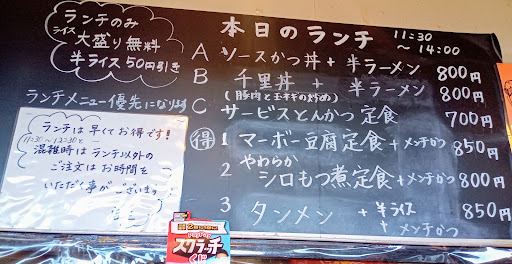 ランチのみ
ライス大盛り無料
半ライス50円引き
ランチメニュー優先になります
ランチは早くてお得です!
11:30〜12:30と
混雑時はランチ以外の
ご注文はお時間を
いただく事がございます
本日のランチ 11:30〜14:00
A ソースかつ丼+半ラーメン 800円
B 千里丼+半ラーメン 800円
(豚肉と玉ネギの炒め)
C サービスとんかつ定食 700円
得 1 マーボー豆腐定食+メンチかつ 850円
2 やわらか
シロもつ煮定食+メンチかつ 800円
3 タンメン +半ライス 850円
+メンチかつ
スクラッチ
くじ